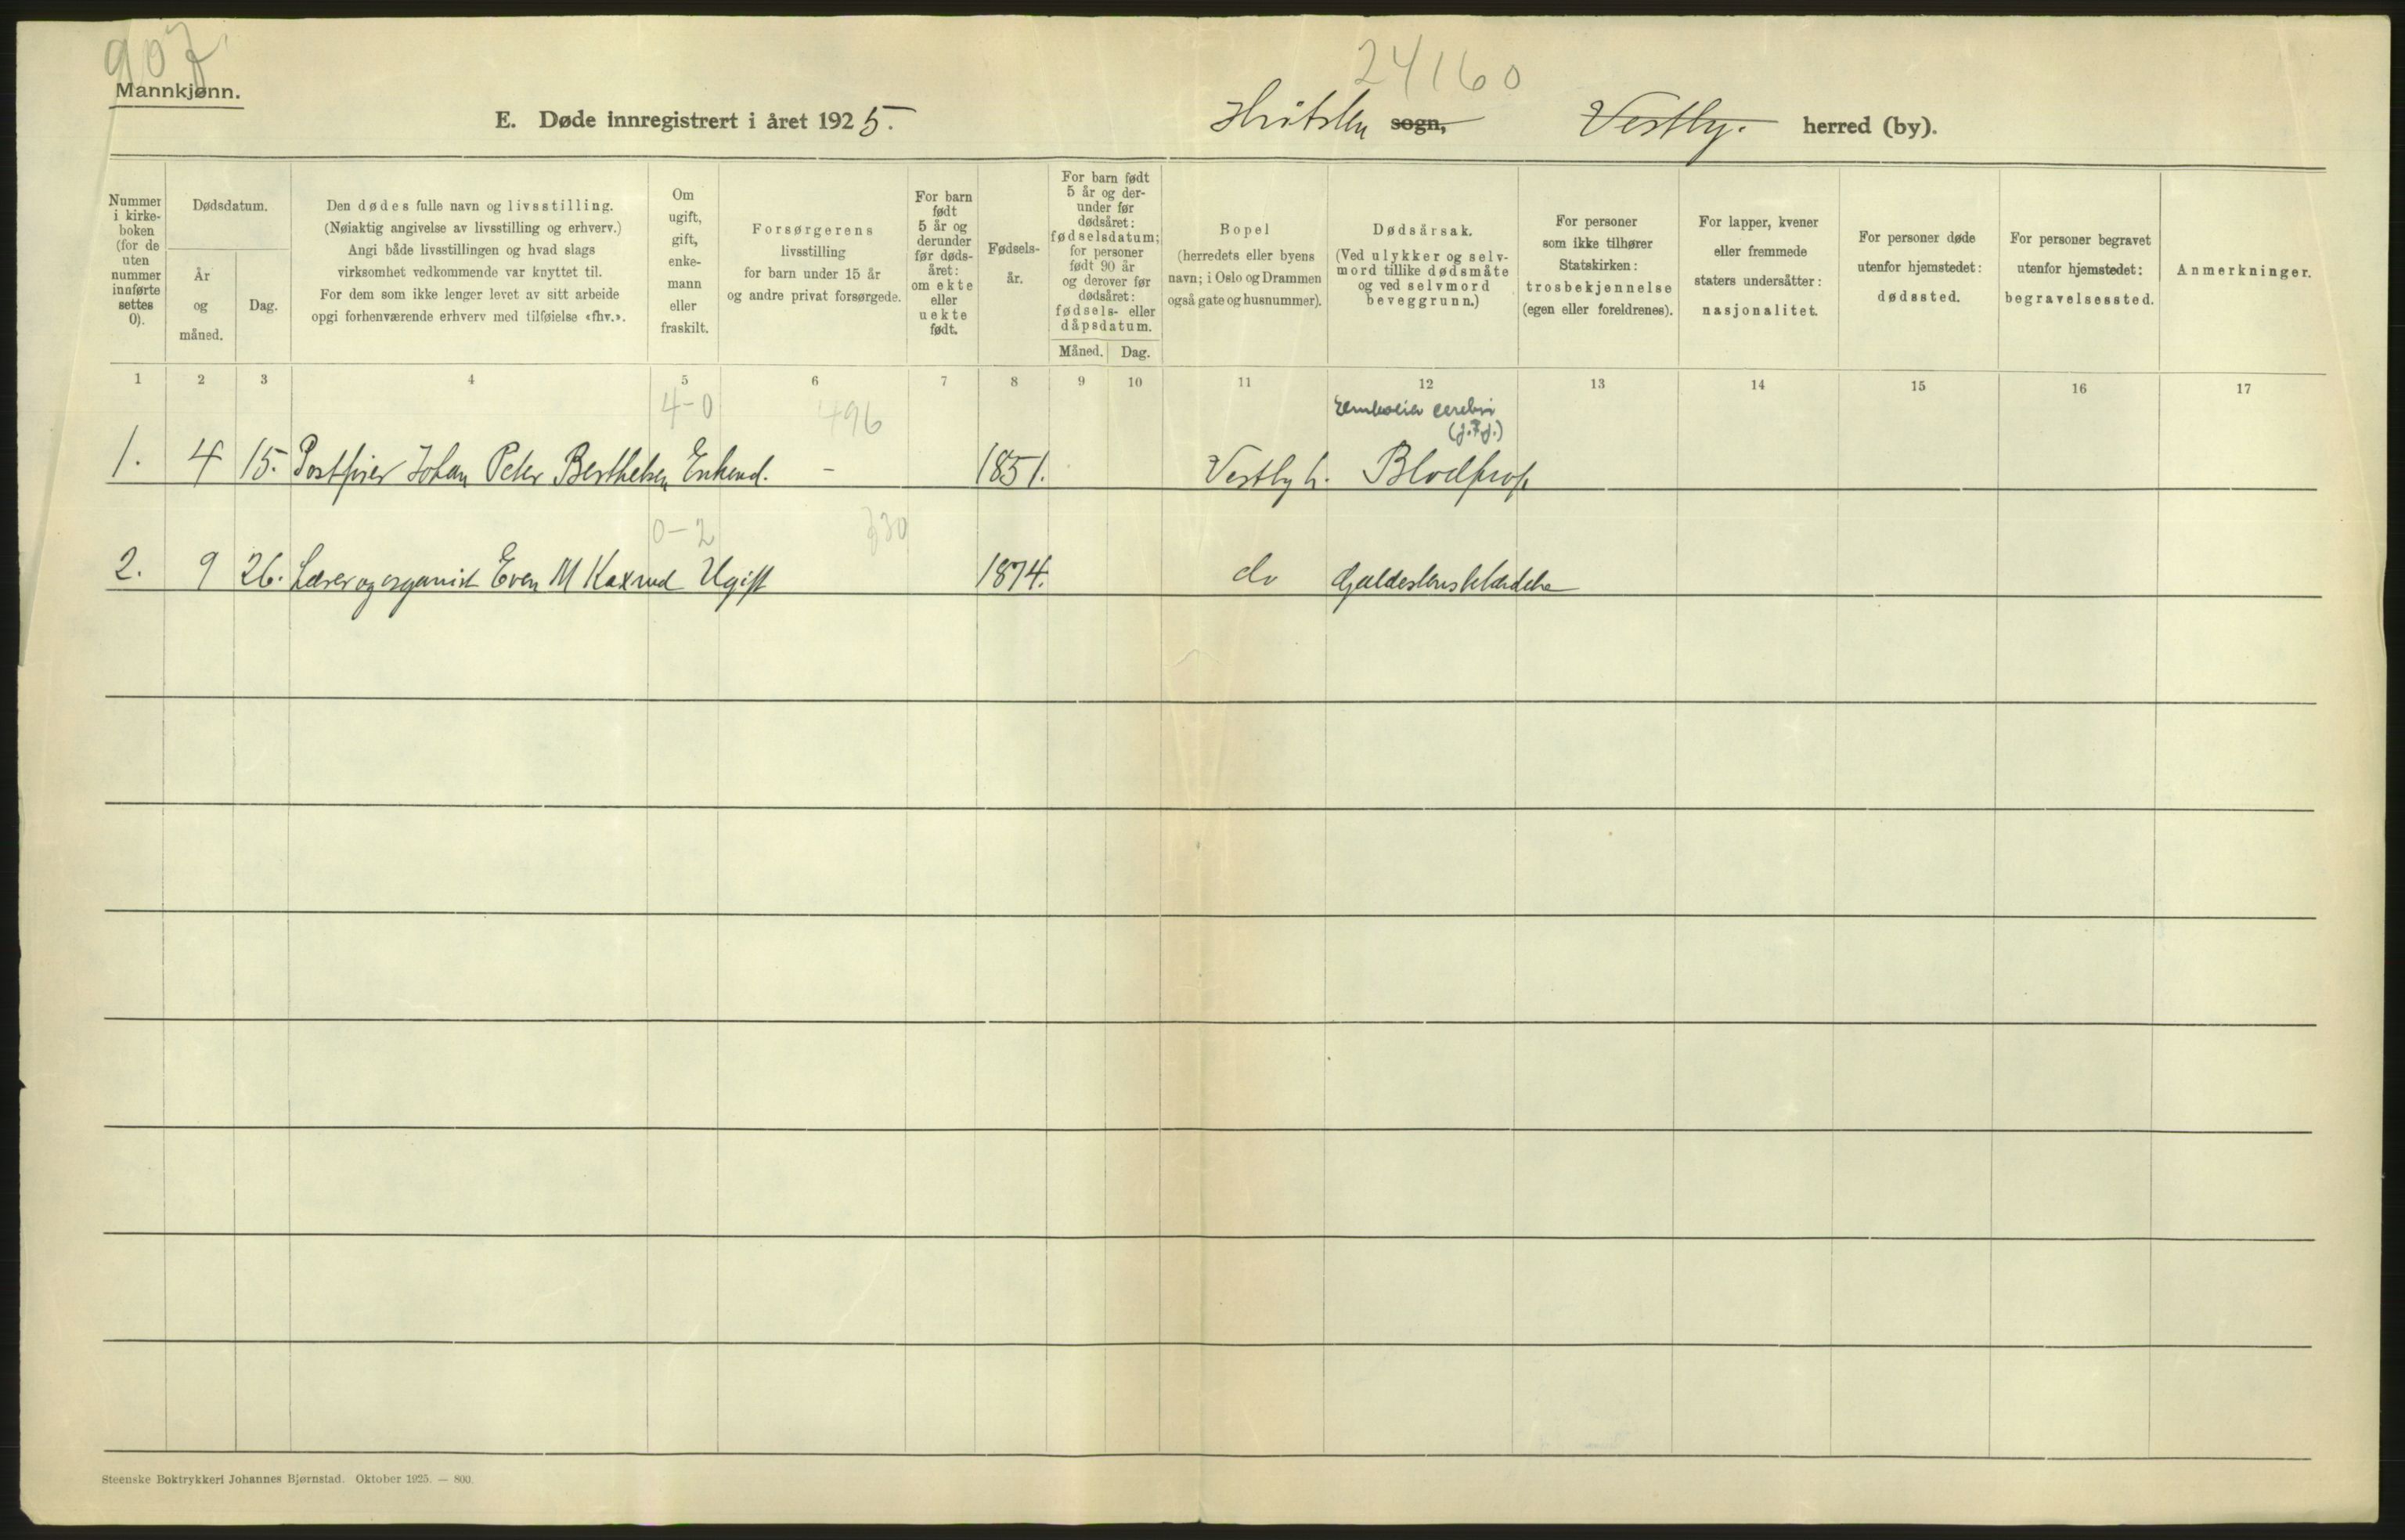 907
24160
Mannkjønn.
E. Døde innregistrert i året 1925. Hvitsten sogn, Vestby. herred (by).
Nummer i kirke- boken (for de uten nummer innførte settes 0).
Dødsdatum.
År og måned.
Dag.
Den dødes fulle navn og livsstilling.
(Nøiaktig angivelse av livsstilling og erhverv.)
Angi både livsstillingen og hvad slags
virksomhet vedkommende var knyttet til.
For dem som ikke lenger levet av sitt arbeide
opgi forhenværende erhverv med tilføielse «fhv.».
Om
ugift,
gift,
enke-
mann
eller
fraskilt.
Forsørgerens
livsstilling
for barn under 15 år
og andre privat forsørgede.
For barn
født
5 år og
derunder
før døds-
året:
om ekte
eller
uekte
født.
Fødsels-
år.
For barn født
5 år og der-
under før
dødsåret:
fødselsdatum;
for personer
født 90 år
og derover før
dødsåret:
fødsels- eller
dåpsdatum.
Måned. Dag.
Bopel
(herredets eller byens
navn; i Oslo og Drammen
også gate og husnummer).
Dødsårsak.
(Ved ulykker og selv-
mord tillike dødsmåte
og ved selvmord
beveggrunn.)
For personer
som ikke tilhører
Statskirken:
trosbekjennelse
(egen eller foreldrenes).
For lapper, kvener
eller fremmede
staters undersåtter:
nasjonalitet.
For personer døde
utenfor hjemstedet:
dødssted.
For personer begravet
utenfor hjemstedet:
begravelsessted.
Anmerkninger.
1 2 3 4 5 6 7 8 9 10 11 12 13 14 15 16 17
4-0 496 cerebri
1. 4 15. Johan Peter Berthelsen Enkem. - 1851. Vestby h. Blodprop
0-2 330
2. 9 26. Lærer og organist Even M Kaxrud Ugift 1874. do
Steenske Boktrykkeri Johannes Bjørnstad. Oktober 1925. — 800.